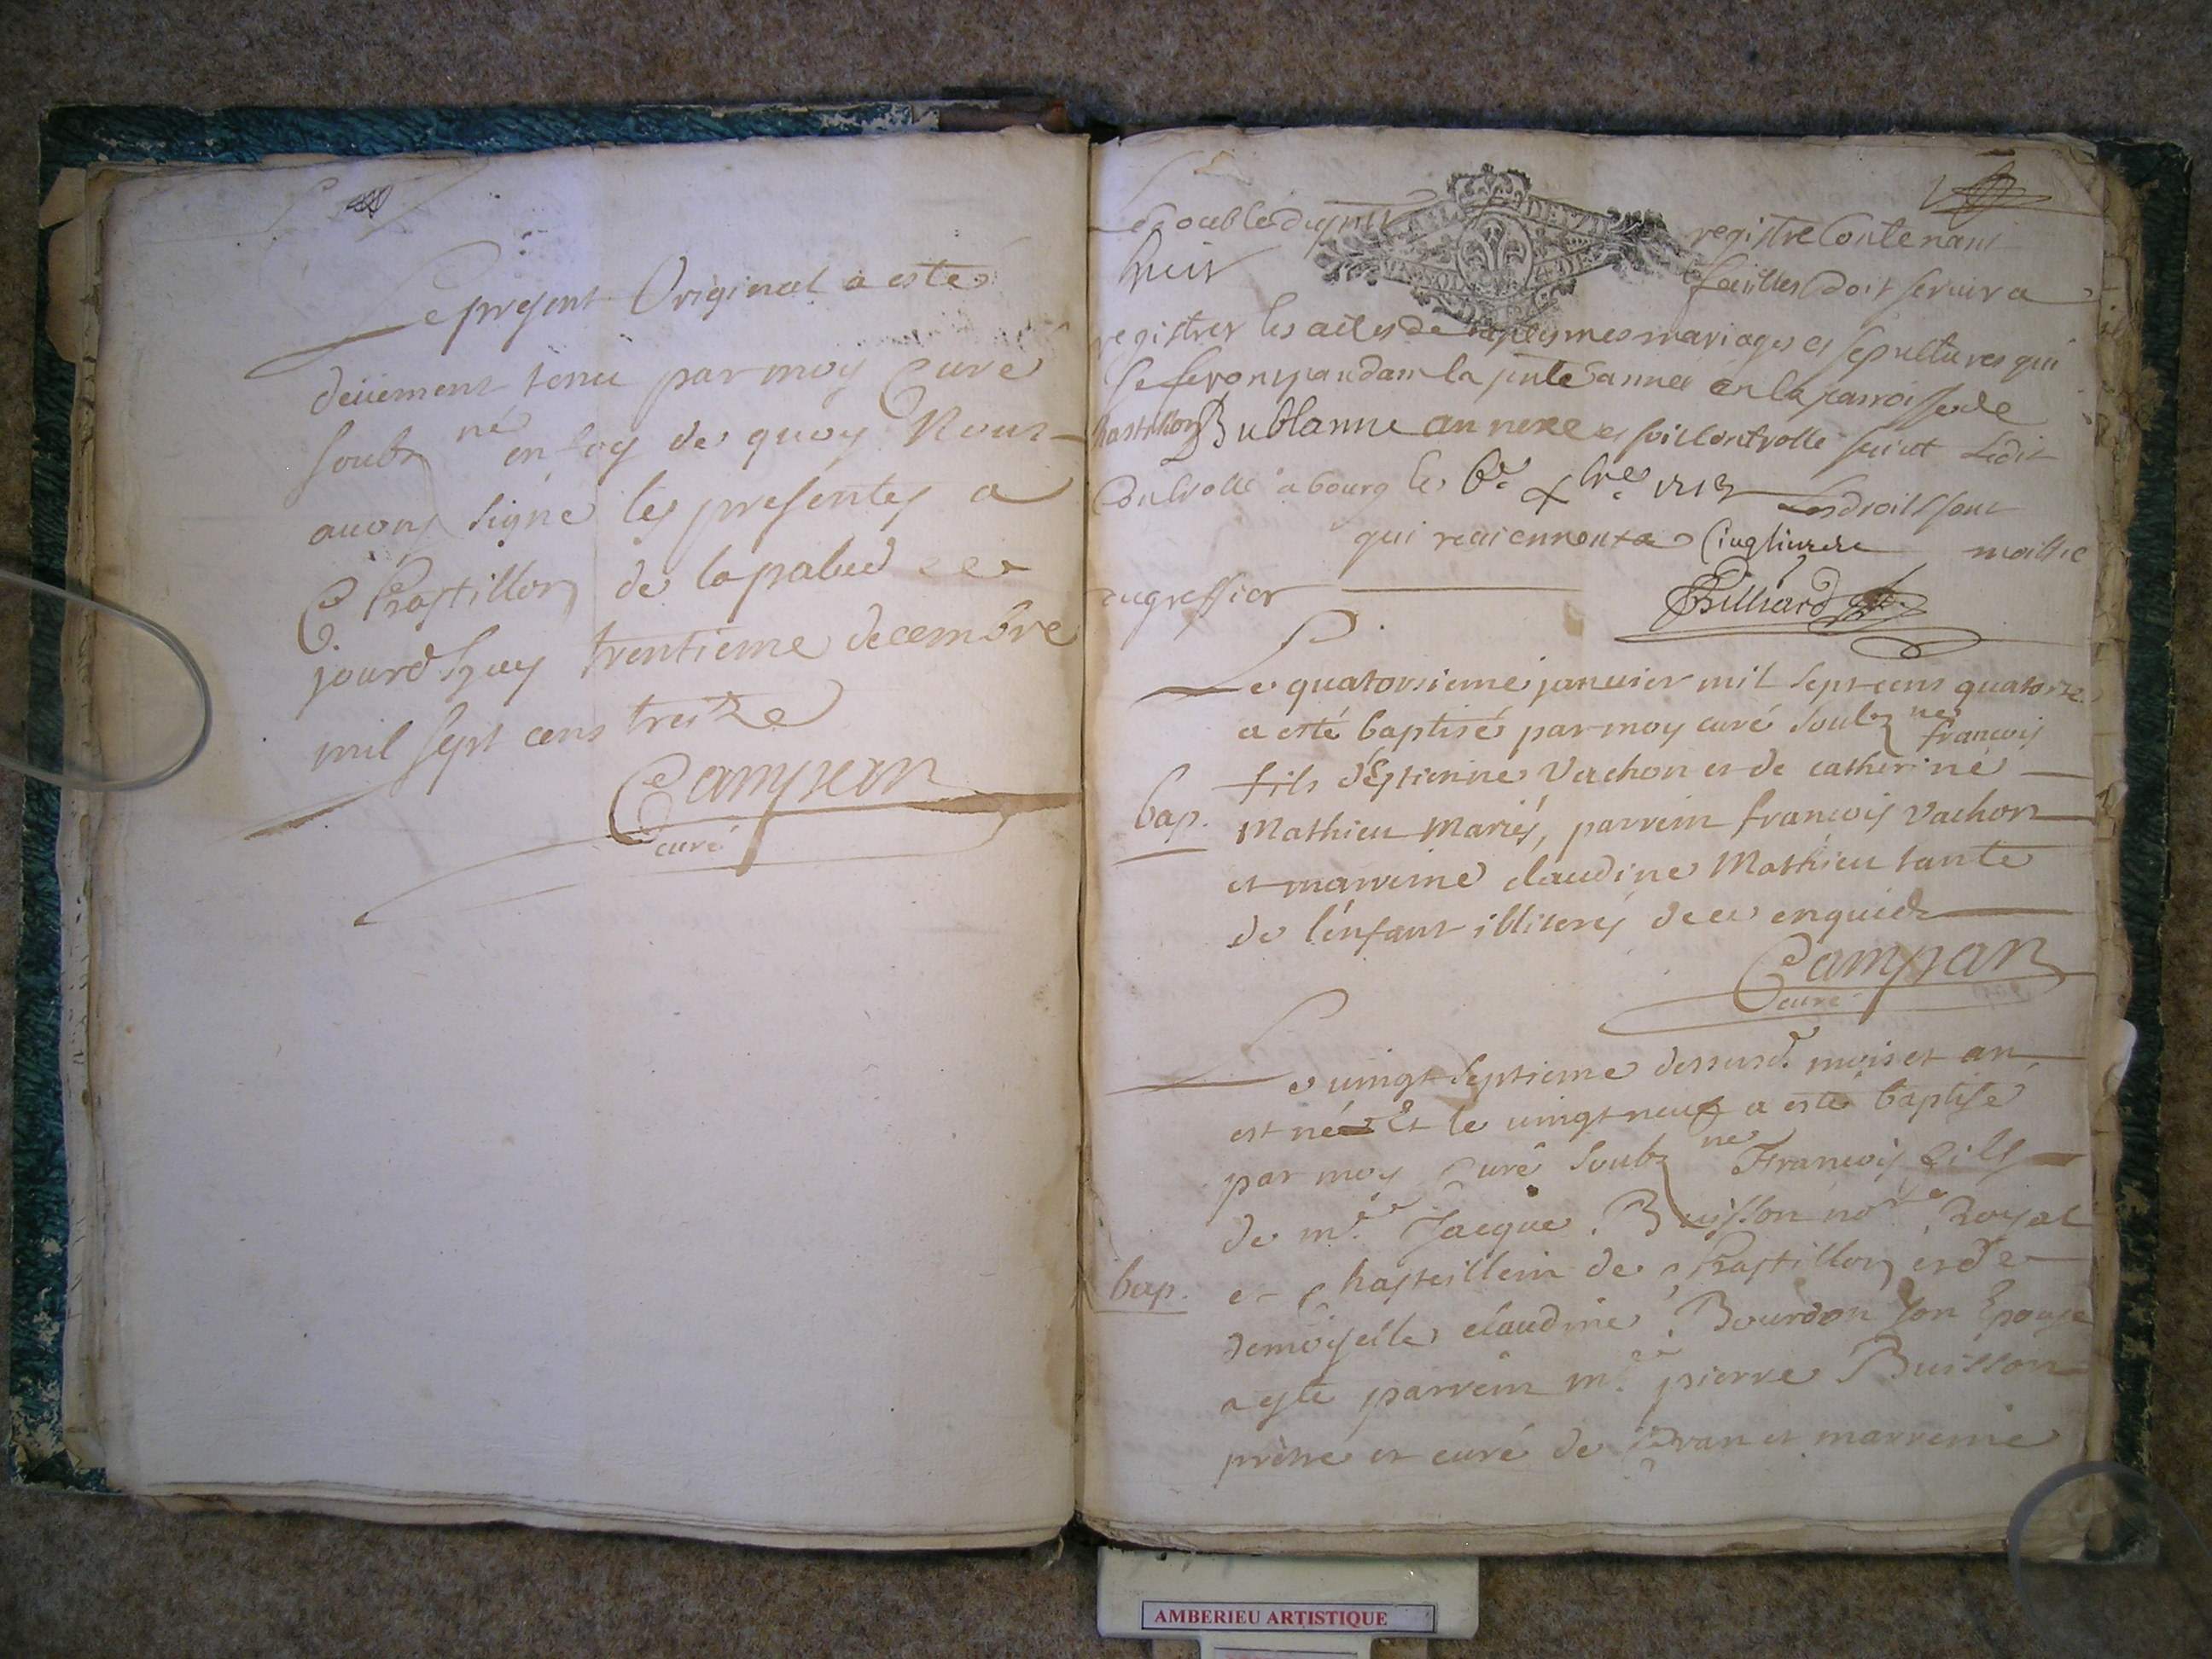 Le present Original a esté
deüement tenu par moy Curé
soubzné en foy de quoy Nous
avons signé les presentes a
Chastillon de la palud ce
jourdhuy trentieme decembre
mil sept cens treize
Campan
curé
Le double du pnt registre Contenant
huit feuilles doit servir a
registrer les actes de baptesmes mariages et sepultures qui
se feront pandant la pnte annee en la parroisse de
Chastillon Bublanne annexe et
Controllé a bourg le 6e xbre 1713 Les droits sont
qui reviennent a Cinq livres moittie
au greffier
Billiard
Le quatorsieme janvier mil sept cens quatorze
a esté baptisé par moy curé soubzné francois
fils d'Estienne Vachon et de catherine
bap. Mathieu Mariés, parrein francois Vachon
et marreine claudine Mathieu tante
de l'enfant illiterés de ce enquis
Campan
curé
Le vingt septieme dessusd. mois et an
est né Et le vingt neuf a esté baptisé
par moy Curé soubzné Francois fils
de mre Jacque Buisson nore Royal
bap. et chasteillein de Chastillon et de
demoiselle claudine Bourdon son Epouse
a esté parrein mre pierre Buisson
prètre et curé de et marreine
AMBERIEU ARTISTIQUE